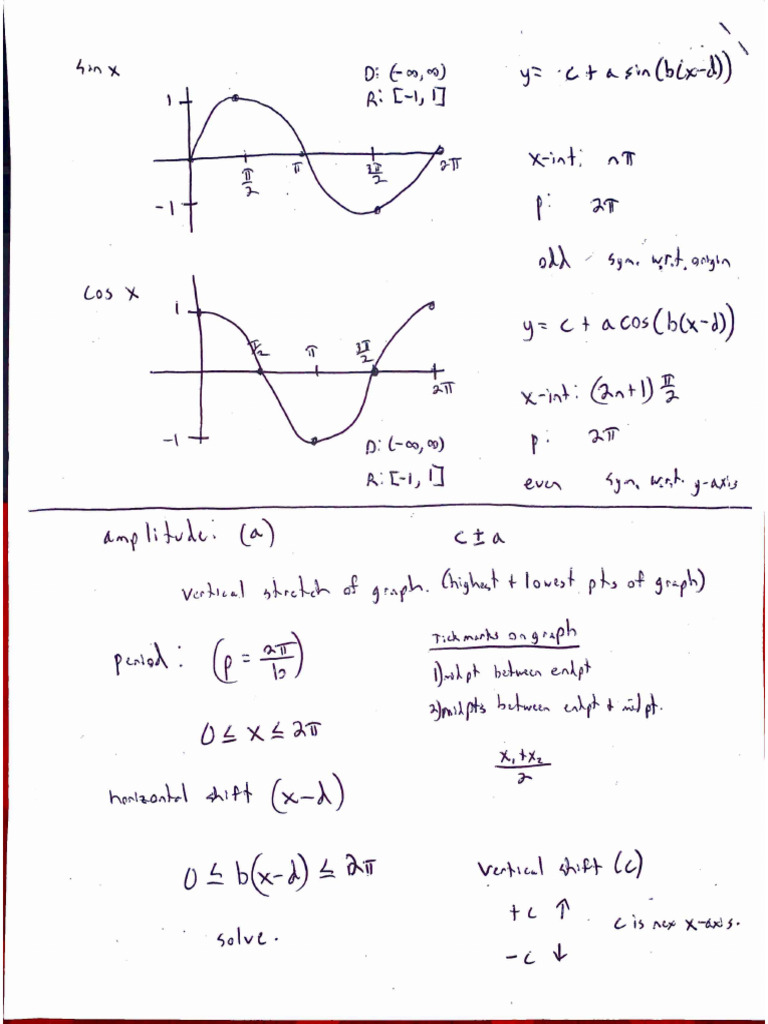 sin x
D: (-∞, ∞)
R: [-1, 1]
y = c + a sin(b(x-d))
1
-1
π/2
π
3π/2
2π
x-int: nπ
p: 2π
odd sym. w.r.t. origin
cos x
1
-1
π/2
π
3π/2
2π
D: (-∞, ∞)
R: [-1, 1]
y = c + a cos(b(x-d))
x-int: (2n+1) π/2
p: 2π
even sym. w.r.t. y-axis
amplitude: (a)
c ± a
vertical stretch of graph. (highest + lowest pts of graph)
period: (p = 2π/b)
0 ≤ x ≤ 2π
Tickmarks on graph
1) midpt between endpt
2) midpts between endpt + midpt.
x₁+x₂/2
horizontal shift (x-d)
0 ≤ b(x-d) ≤ 2π
solve.
vertical shift (c)
+c ↑
-c ↓
c is new x-axis.